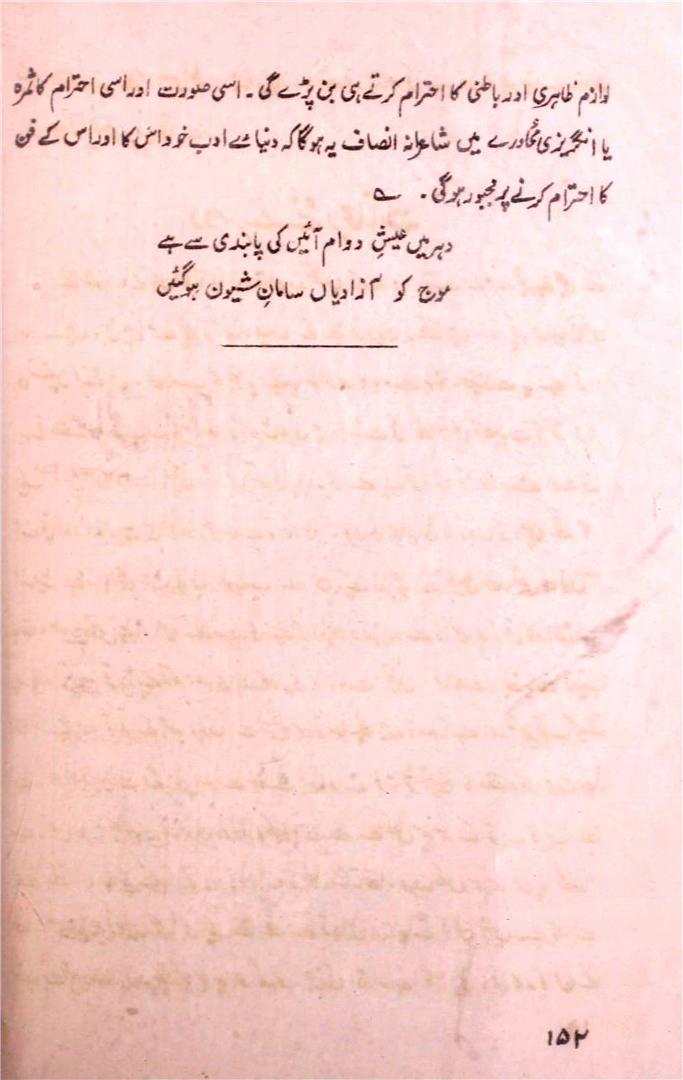 لوازم ظاہری اور باطنی کا احترام کرتے ہی بن پڑے گی۔ اسی صورت اور اسی احترام کا ثمرہ
یا انگریزی محاورے میں شاعرانہ انصاف یہ ہوگا کہ دنیائے ادب خود اس کا اور اس کے فن
کا احترام کرنے پر مجبور ہوگی۔ ؎
دہر میں عیشِ دوام آئیں کی پابندی سے ہے
موج کو آزادیاں سامانِ شیون ہوگئیں
۱۵۲